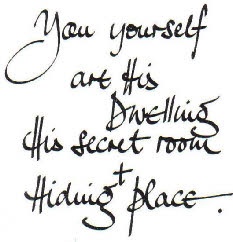 You yourself
are His
Dwelling
His secret room
+
Hiding place.